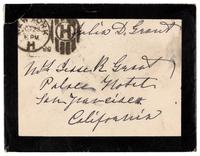 NEW YORK
H
H
Julia D. Grant
Mrs Jesse R Grant
Palace Hotel
San Francisco
California